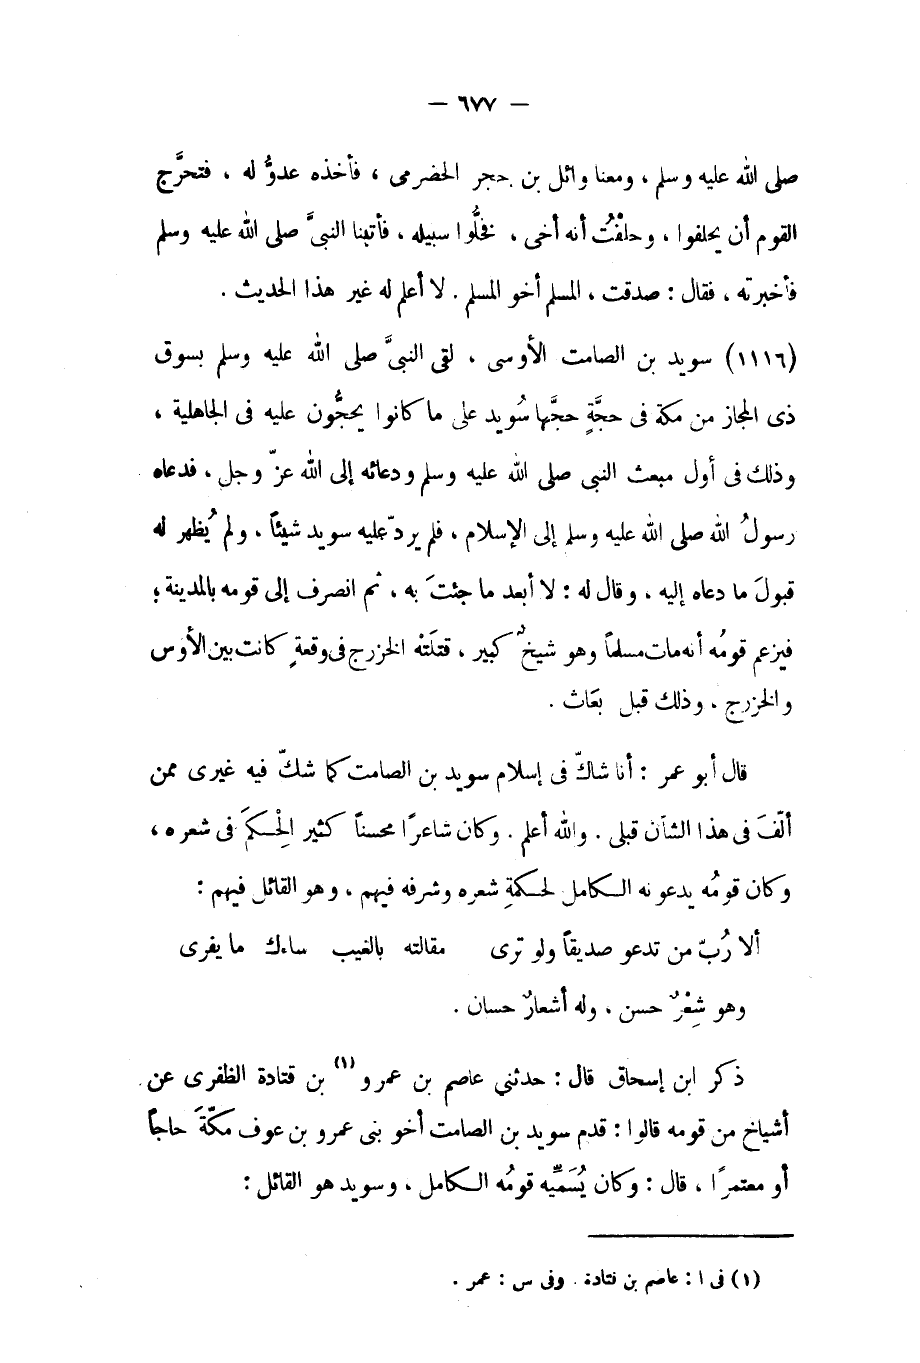 — ٦٧٧ —
صلى الله عليه وسلم ، ومعنا وائل بن حجر الحضرمى ، فأخذه عدوٌّ له ، فتحرَّج
القوم أن يحلفوا ، وحلفْتُ أنه أخى ، فخلُّوا سبيله ، فأتينا النبىَّ صلى الله عليه وسلم
فأخبرته ، فقال : صدقت ، المسلم أخو المسلم . لا أعلم له غير هذا الحديث .
(١١١٦) سويد بن الصامت الأوسى ، لقى النبىَّ صلى الله عليه وسلم بسوق
ذى المجاز من مكة فى حجَّةٍ حجَّها سُويد على ما كانوا يحجُّون عليه فى الجاهلية ،
وذلك فى أول مبعث النبى صلى الله عليه وسلم ودعائه إلى الله عزّ وجل ، فدعاه
رسولُ الله صلى الله عليه وسلم إلى الإسلام ، فلم يردّ عليه سويد شيئاً ، ولم يُظهر له
قبولَ ما دعاه إليه ، وقال له : لا أبعد ما جئتَ به ، ثم انصرف إلى قومه بالمدينة ؛
فيزعم قومُه أنه مات مسلماً وهو شيخٌ كبير ، قتلَتْه الخزرج فى وقعةٍ كانت بين الأوس
والخزرج ، وذلك قبل بعَاث .
قال أبو عمر : أنا شاكّ فى إسلام سويد بن الصامت كما شكّ فيه غيرى ممن
ألّفَ فى هذا الشأن قبلى . والله أعلم . وكان شاعرًا محسناً كثير الْحِكَمَ فى شعره ،
وكان قومُه يدعونه الكامل لحكمةِ شعره وشرفه فيهم ، وهو القائل فيهم :
ألا رُبّ من تدعو صديقاً ولو ترى مقالته بالغيب ساءك ما يفرى
وهو شِعْرٌ حسن ، وله أشعارٌ حسان .
ذكر ابن إسحاق قال : حدثني عاصم بن عمرو (١) بن قتادة الظفرى عن
أشياخ من قومه قالوا : قدم سويد بن الصامت أخو بنى عمرو بن عوف مكّةَ حاجاً
أو معتمرًا ، قال : وكان يُسَمِّيه قومُه الكامل ، وسويد هو القائل :
(١) فى ا : عاصم بن قتادة . وفى س : عمر .